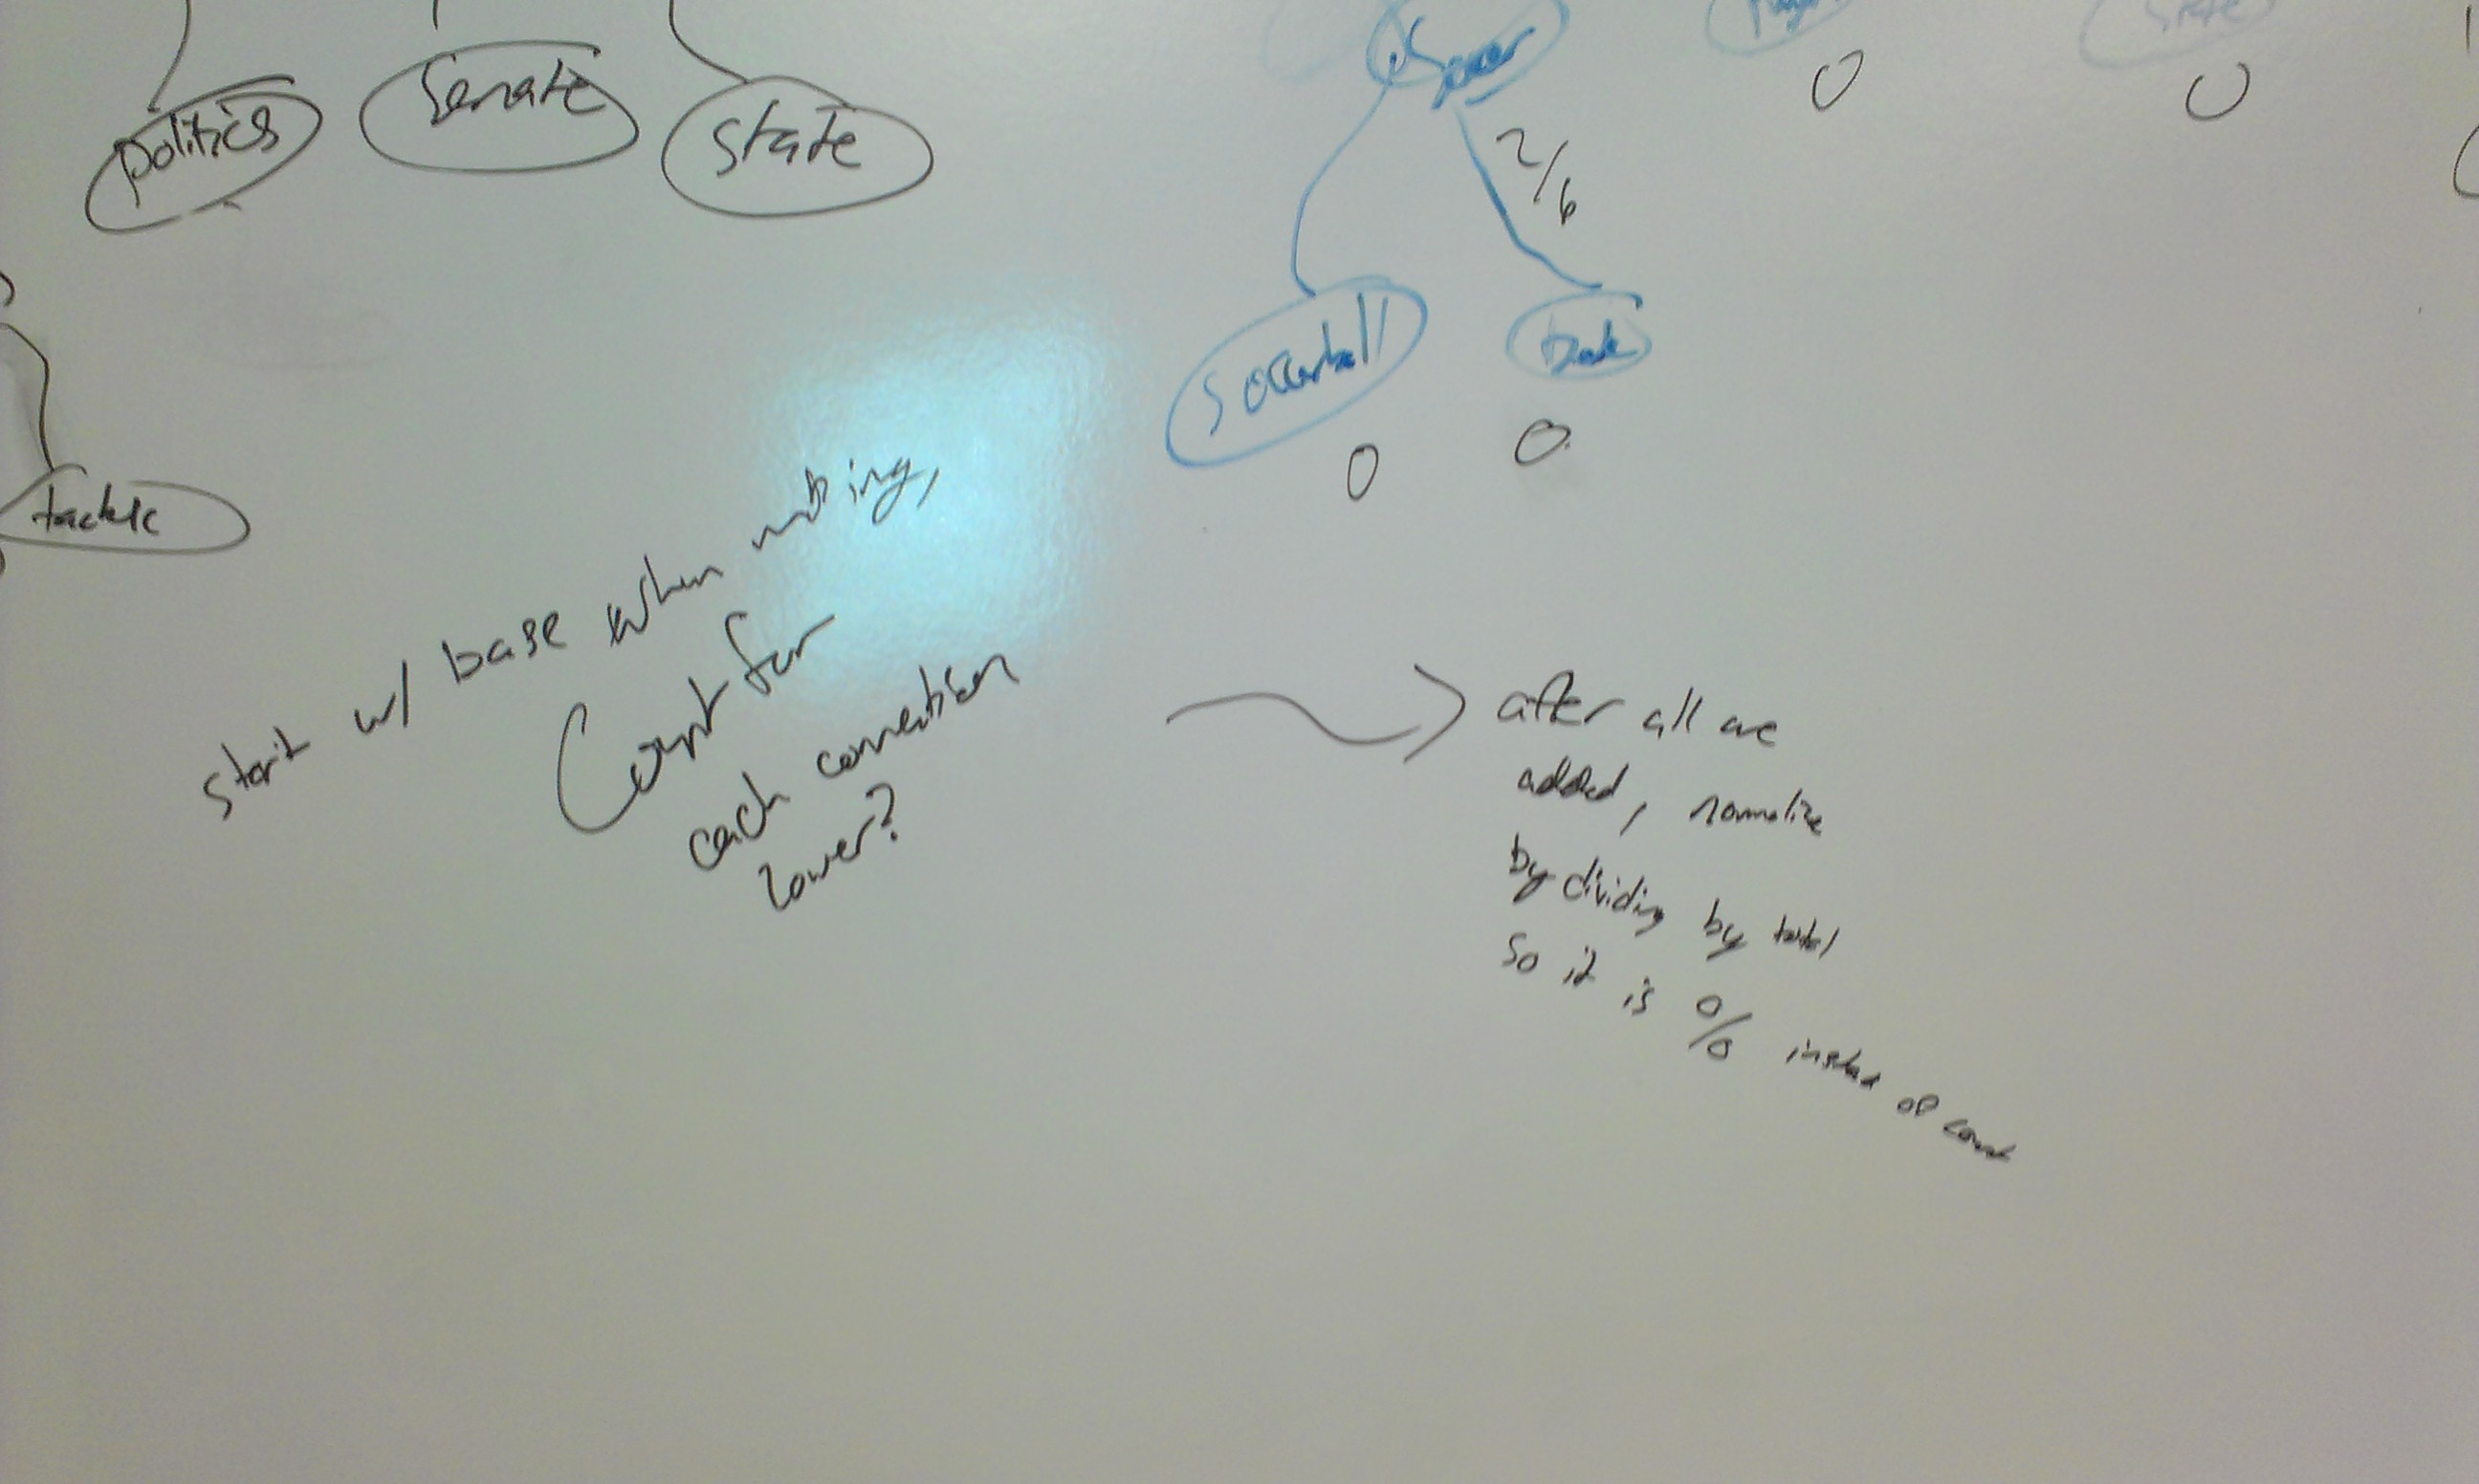 politics
Senate
state
Soccer
0
State
0
2/6
Soccerball
0
0
tackle
start w/ base when making,
Count for
each connection
lower?
after all are
added, normalize
by dividing by total
so it is % instead of count